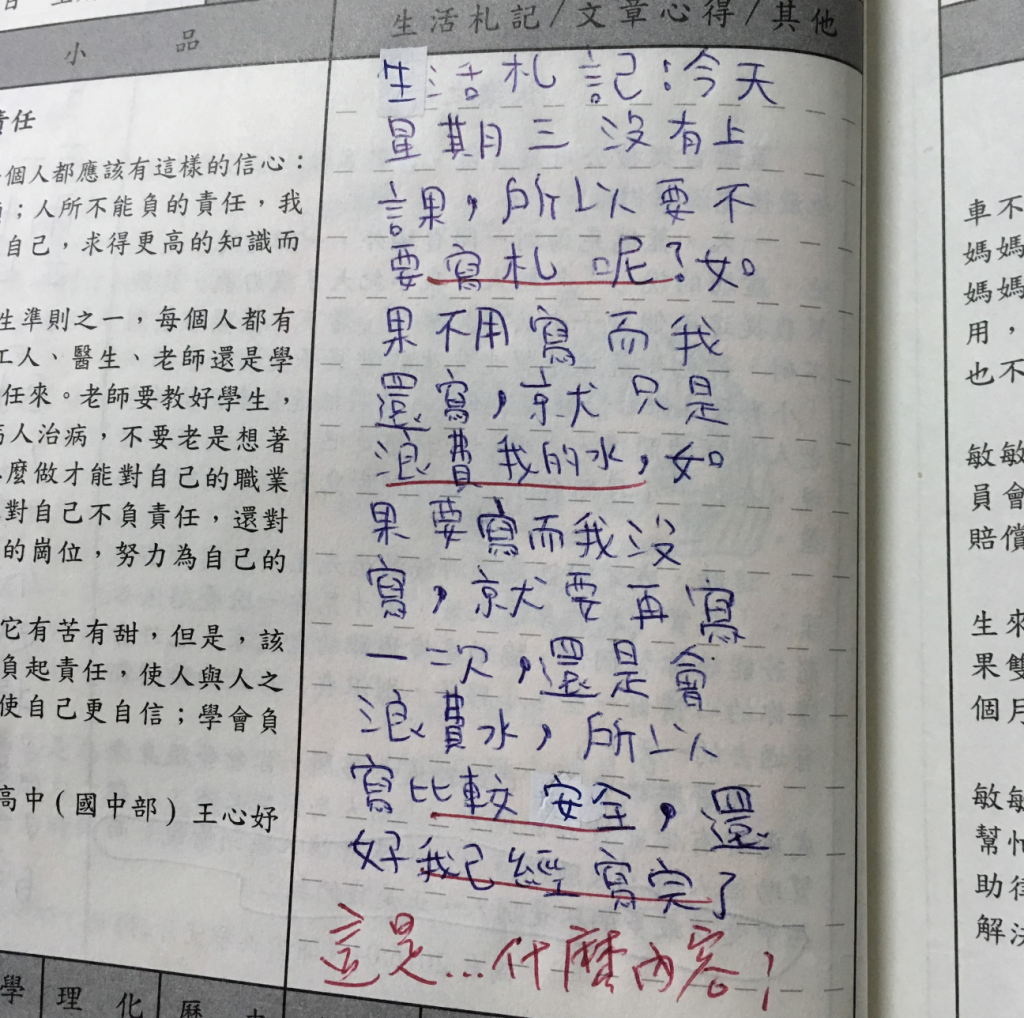 生活札記/文章心得/其他
小品
責任
個人都應該有這樣的信心：
；人所不能負的責任，我
自己，求得更高的知識而
生準則之一，每個人都有
工人、醫生、老師還是學
任來。老師要教好學生，
人治病，不要老是想著
麼做才能對自己的職業
對自己不負責任，還對
的崗位，努力為自己的
它有苦有甜，但是，該
負起責任，使人與人之
使自己更自信；學會負
高中(國中部) 王心妤
生活札記：今天
星期三沒有上
課，所以要不
要寫札呢？如
果不用寫而我
還寫，就只是
浪費我的水，如
果要寫而我沒
寫，就要再寫
一次，還是會
浪費水，所以
寫比較安全，還
好我已經寫完了
這是...什麼內容！
車不
媽媽
媽媽
用，
也不
敏敏
員會
賠償
生來
果雙
個月
敏敏
幫忙
助徒
解決
學
理化
歷